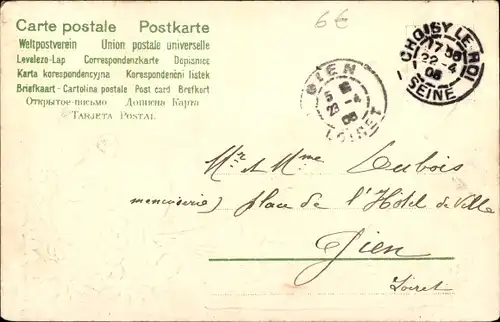 Carte postale Postkarte
Weltpostverein Union postale universelle
Levelezo-Lap Correspondenzkarte Dopisnice
Karta korespondencyjna Korespondenčni listek
Briefkaart - Cartolina postale Post card Brefkort
Открытое-письмо Дописна Карта
TARJETA POSTAL
6€
CHOISY LE ROI
17 35
22-4
05
SEINE
GIEN
5
23-4
05
LOIRET
Mr et Mme Dubois
menuiserie) place de l'Hôtel de Ville
Gien
Loiret